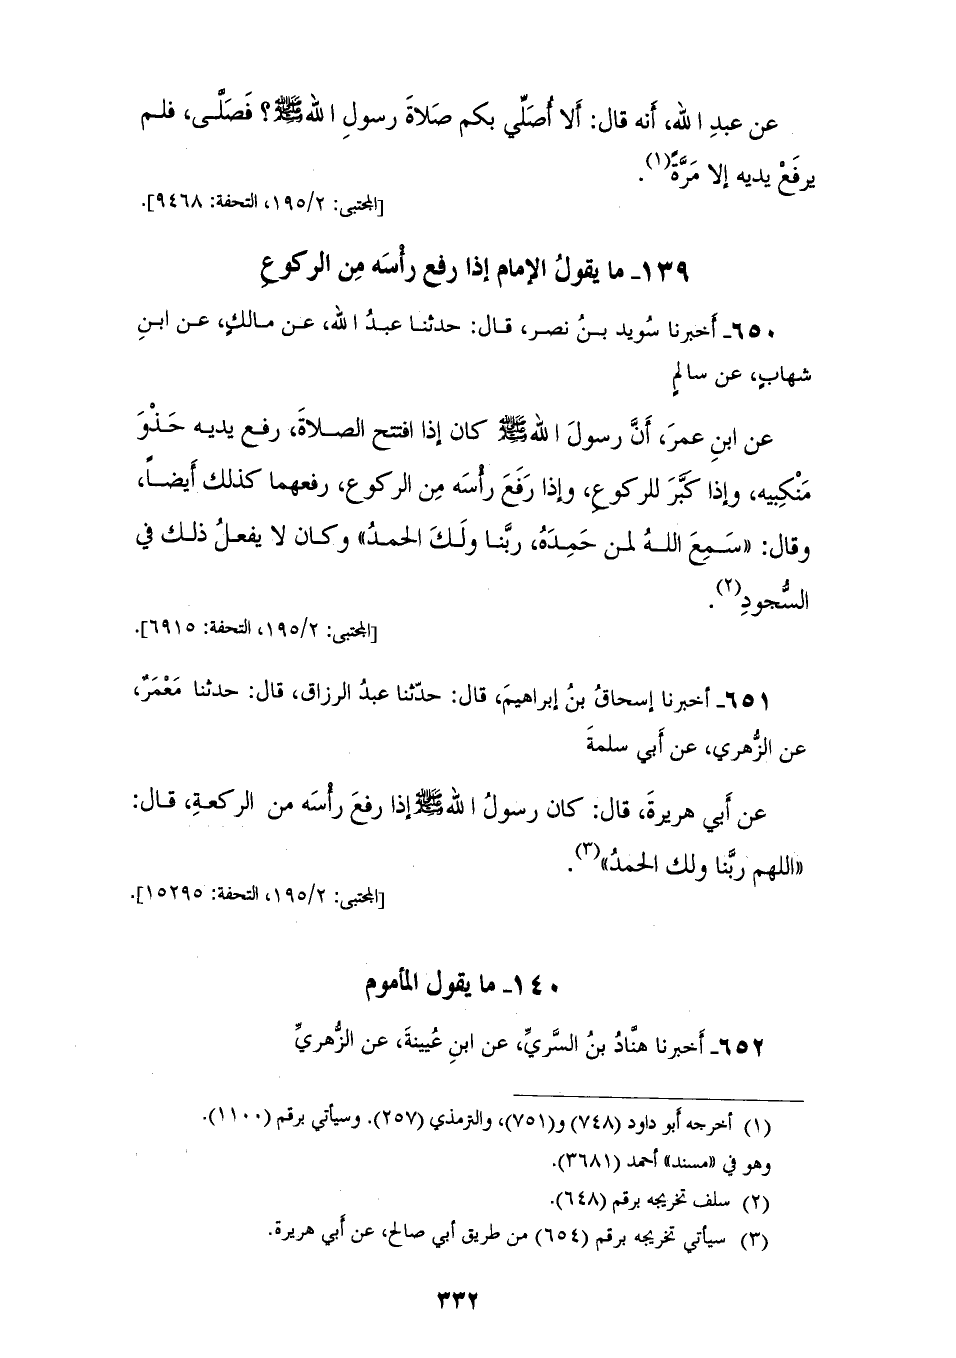 عن عبدِ الله، أنه قال: ألا أُصَلِّي بكم صلاةَ رسولِ اللهﷺ؟ فَصَلَّـى، فلـم
يرفَعْ يديه إلا مَرَّةً(١).
[المجتبى: ١٩٥/٢، التحفة: ٩٤٦٨].
١٣٩ـ ما يقولُ الإمام إذا رفع رأْسَه مِن الركوعِ
٦٥٠ـ أَخبرنا سُويد بـنُ نصـر، قـال: حدثنـا عبـدُ الله، عـن مـالكٍ، عـن ابـنِ
شهابٍ، عن سالمٍ
عن ابنِ عمرَ، أَنَّ رسولَ اللهﷺ كان إذا افتتح الصـلاةَ، رفـع يديـه حَـذْوَ
مَنْكِبيه، وإذا كَبَّرَ للركوعِ، وإذا رَفَعَ رأْسَه مِن الركوع، رفعهما كذلك أَيضـاً،
وقال: «سَـمِعَ اللـهُ لمـن حَمِـدَهُ، ربَّنـا ولَـكَ الحمـدُ» وكـان لا يفعـلُ ذلـك في
السُّجودِ(٢).
[المجتبى: ١٩٥/٢، التحفة: ٦٩١٥].
٦٥١ـ أخبرنا إسحاقُ بنُ إبراهيمَ، قال: حدّثنا عبدُ الرزاق، قال: حدثنا مَعْمَرٌ،
عن الزُّهري، عن أَبي سلمةَ
عن أَبي هريرةَ، قال: كان رسولُ اللهﷺ إذا رفعَ رأْسَه من الركعـةِ، قـال:
«اللهم ربَّنا ولك الحمدُ»(٣).
[المجتبى: ١٩٥/٢، التحفة: ١٥٢٩٥].
١٤٠ـ ما يقول المأموم
٦٥٢ـ أَخبرنا هنَّادُ بنُ السَّريِّ، عن ابنِ عُيينةَ، عن الزُّهريِّ
(١) أخرجه أَبو داود (٧٤٨) و(٧٥١)، والترمذي (٢٥٧). وسيأتي برقم (١١٠٠).
وهو في «مسند» أحمد (٣٦٨١).
(٢) سلف تخريجه برقم (٦٤٨).
(٣) سيأتي تخريجه برقم (٦٥٤) من طريق أبي صالح، عن أَبي هريرة.
٣٣٢